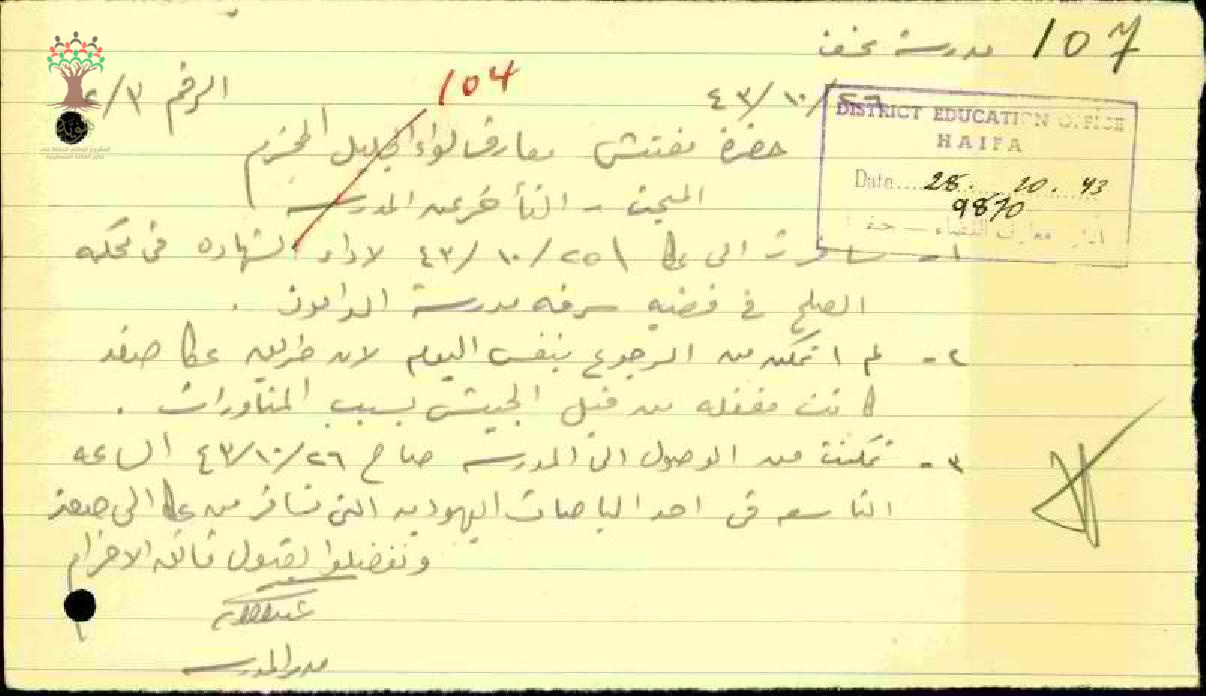 107
مدرسة نحف
٤٣/١٠/٢٦
104
الرقم ٣/
DISTRICT EDUCATION OFFICE
HAIFA
Date....28. 10. 43
9870
حضرة مفتش معارف لواء الجليل المحترم
المبحث - التأخر عن المدرسه
١- سافرت الى عكا ٤٣/١٠/٢٥ لاداء الشهاده في محكمة
الصلح في قضيه سرقه مدرسة الدامون .
٢- لم اتمكن من الرجوع بنفس اليوم لان طريق عكا صفد
كانت مقفله من قبل الجيش بسبب المناورات .
٣- تمكنت من الوصول الى المدرسه صباح ٤٣/١٠/٢٦ الساعه
التاسعه في احد الباصات اليهوديه التي تسافر من عكا الى صفد
وتفضلوا بقبول فائق الاحترام
مدير المدرسه